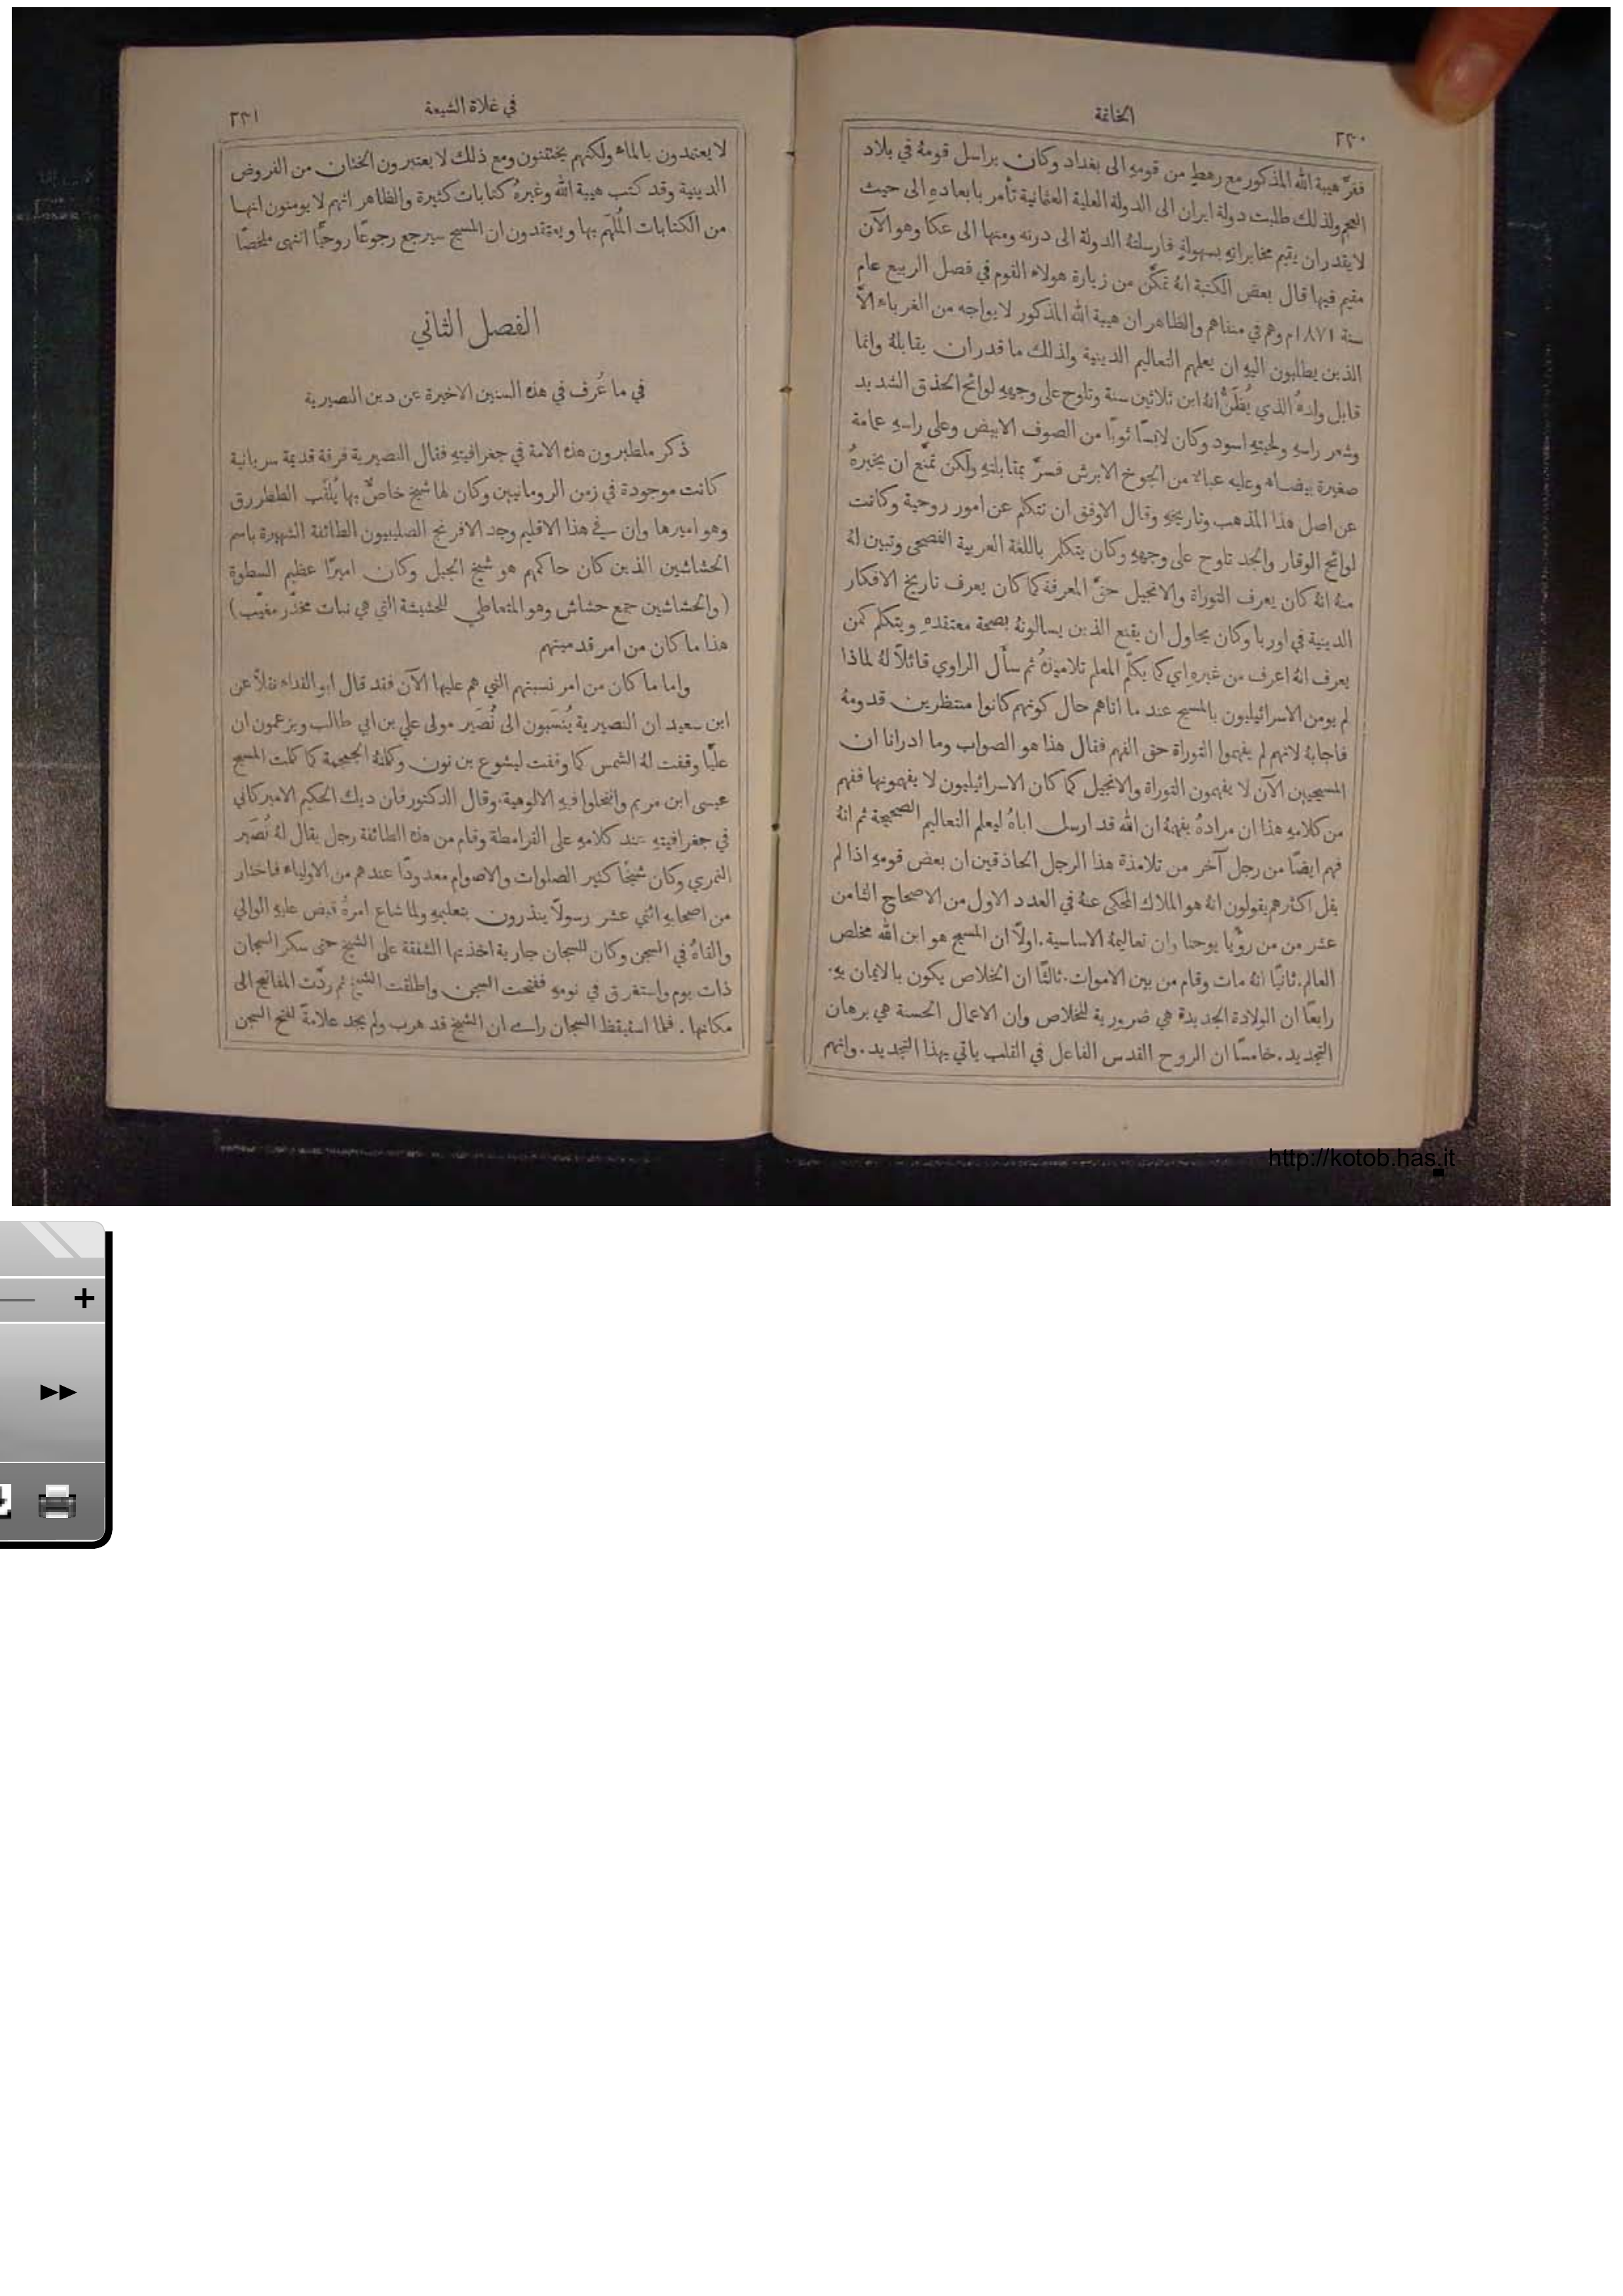 الخاتمة
٢٣٠
ففرَّ هيبة الله المذكور مع رهطٍ من قومهِ الى بغداد وكان يراسل قومهُ في بلاد
العجم ولذلك طلبت دولة ايران الى الدولة العلية العثمانية تأمر بابعادهِ الى حيث
لا يقدر ان يقيم مخابراتهِ بسهولةٍ فارسلتهُ الدولة الى درنه ومنها الى عكا وهو الآن
مقيم فيها قال بعض الكتبة انهُ تمكَّن من زيارة هولاء القوم في فصل الربيع عام
سنة ١٨٧١م وهم في منفاهم والظاهر ان هيبة الله المذكور لا يواجه من الغرباء الَّا
الذين يطلبون اليهِ ان يعلمهم التعاليم الدينية ولذلك ما قدر ان يقابلهُ وانما
قابل ولدهُ الذي يُظَنُّ انهُ ابن ثلاثين سنة وتلوح على وجههِ لوائح الحذق الشديد
وشعر راسهِ ولحيتهِ اسود وكان لابسًا ثوبًا من الصوف الابيض وعلى راسهِ عمامة
صغيرة بيضاء وعليه عباءٌ من الجوخ الابرش فسرَّ بمقابلتهِ ولكن تمنَّع ان يخبرهُ
عن اصل هذا المذهب وتاريخهِ وقال الاوفق ان نتكلم عن امور روحية وكانت
لوائح الوقار والجد تلوح على وجههِ وكان يتكلم باللغة العربية الفصحى وتبين لهُ
منهُ انهُ كان يعرف التوراة والانجيل حقَّ المعرفة كما كان يعرف تاريخ الافكار
الدينية في اوربا وكان يحاول ان يقنع الذين يسالونهُ بصحة معتقدهِ ويتكلم كمن
يعرف انهُ اعرف من غيرهِ اي كما يكلّم المعلم تلاميذهُ ثم سأل الراوي قائلاً لهُ لماذا
لم يومن الاسرائيليون بالمسيح عند ما اتاهم حال كونهم كانوا منتظرين قدومهُ
فاجابهُ لانهم لم يفهموا التوراة حق الفهم فقال هذا هو الصواب وما ادرانا ان
المسيحيين الآن لا يفهمون التوراة والانجيل كما كان الاسرائيليون لا يفهمونها ففهم
من كلامهِ هذا ان مرادهُ يفهمهُ ان الله قد ارسل اباهُ ليعلم التعاليم الصحيحة ثم انهُ
فهم ايضًا من رجل آخر من تلامذة هذا الرجل الحاذقين ان بعض قومهِ اذا لم
يقل اكثرهم يقولون انهُ هو الملاك المحكى عنهُ في العدد الاول من الاصحاح الثامن
عشر من من رؤْيا يوحنا وان تعاليمهُ الاساسية. اولًا ان المسيح هو ابن الله مخلص
العالم. ثانيًا انهُ مات وقام من بين الاموات. ثالثًا ان الخلاص يكون بالايمان بهِ.
رابعًا ان الولادة الجديدة هي ضرورية للخلاص وان الاعمال الحسنة هي برهان
التجديد. خامسًا ان الروح القدس الفاعل في القلب ياتي بهذا التجديد. وانهم
في غلاة الشيعة
٢٣١
لا يعتمدون بالماء ولكنهم يختتنون ومع ذلك لا يعتبرون الختان من الفروض
الدينية وقد كتب هيبة الله وغيرهُ كتابات كثيرة والظاهر انهم لا يومنون انها
من الكتابات المُلهَم بها ويعتقدون ان المسيح سيرجع رجوعًا روحيًّا انتهى ملخصًا
الفصل الثاني
في ما عُرف في هذه السنين الاخيرة عن دين النصيرية
ذكر ملطبرون هذه الامة في جغرافيتهِ فقال النصيرية فرقة قديمة سريانية
كانت موجودة في زمن الرومانيين وكان لها شيخ خاصٌّ بها يُلقَّب الططررق
وهو اميرها وان في هذا الاقليم وجد الافرنج الصليبيون الطائفة الشهيرة باسم
الحشاشين الذين كان حاكمهم هو شيخ الجبل وكان اميرًا عظيم السطوة
(والحشاشين جمع حشاش وهو المتعاطي للحشيشة التي هي نبات مخدّر مغيّب)
هذا ما كان من امر قدميتهم
واما ما كان من امر نسبتهم التي هم عليها الآن فقد قال ابو الفداء نقلاً عن
ابن سعيد ان النصيرية يُنسَبون الى نُصَير مولى علي بن ابي طالب ويزعمون ان
عليًّا وقفت لهُ الشمس كما وقفت ليشوع بن نون وكلمتهُ الجمجمة كما كلمت المسيح
عيسى ابن مريم وانتحلوا فيهِ الالوهية. وقال الدكتور فان ديك الحكيم الاميركاني
في جغرافيتهِ عند كلامهِ على القرامطة وقام من هذه الطائفة رجل يقال لهُ نُصَير
النمري وكان شيخًا كثير الصلوات والاصوام معدودًا عندهم من الاولياء فاختار
من اصحابهِ اثني عشر رسولاً ينذرون بتعليمهِ ولما شاع امرهُ قبض عليهِ الوالي
والقاهُ في السجن وكان للسجان جارية اخذتها الشفقة على الشيخ حتى سكر السجان
ذات يوم واستغرق في نومهِ ففتحت السجن واطلقت الشيخ ثم ردّت المفاتيح الى
مكانها. فلما استيقظ السجان راى ان الشيخ قد هرب ولم يجد علامةً لفتح السجن
http://kotob.has.it